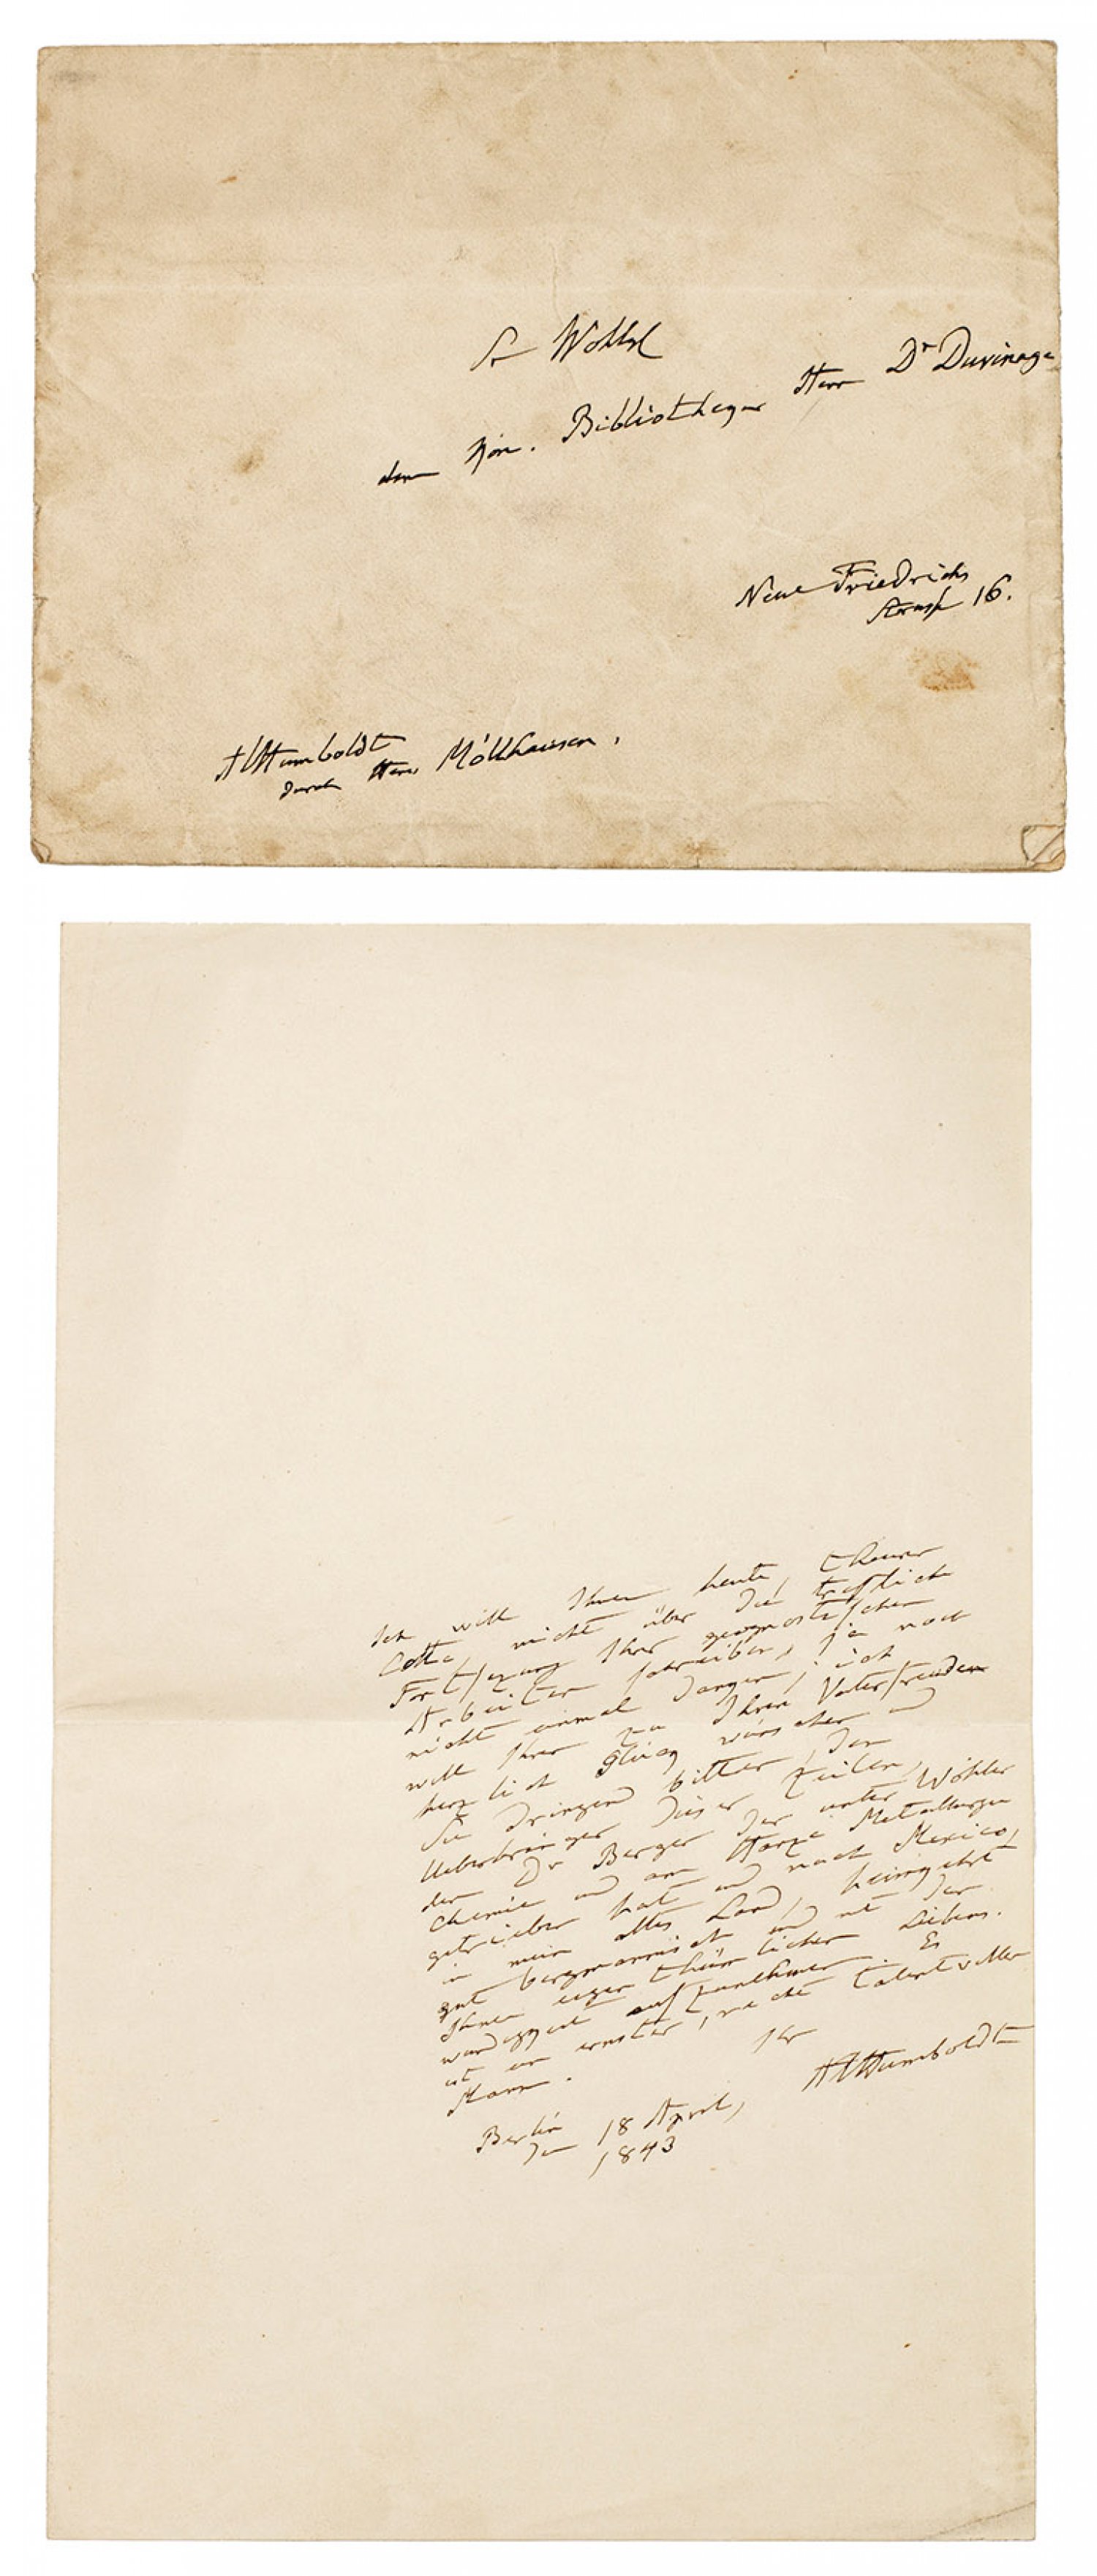 Sr Wohlg
dem Kön. Bibliothequar Herrn Dr Duvinage
Neue Friedrichs
Strasse 16.
AlHumboldt
durch Herrn Möllhausen.
Ich will Ihnen heute, theurer
Cotta, nicht über die trefliche
Fortsezung Ihrer geognostischen
Arbeiten schreiben, ja noch
nicht einmal danken; ich
will Ihnen zu Ihren Vaterfreuden
herzlich Glück wünschen und
Sie dringend bitten, den
Ueberbringer dieser Zeilen,
den Dr Berger der unter Wöhler
Chemie und am Harze Metallurgie
getrieben hat und nach Mexico,
in mein altes Land, heimgeht
gut bergmännisch und mit der
Ihnen eigenthümlichen Liebens-
würdigkeit aufzunehmen. Es
ist ein ernster, recht talentvoller
Mann.
Ihr
AlHumboldt
Berlin
den 18 April,
1843